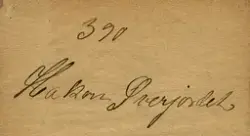 390
Hakon Dverjordet.